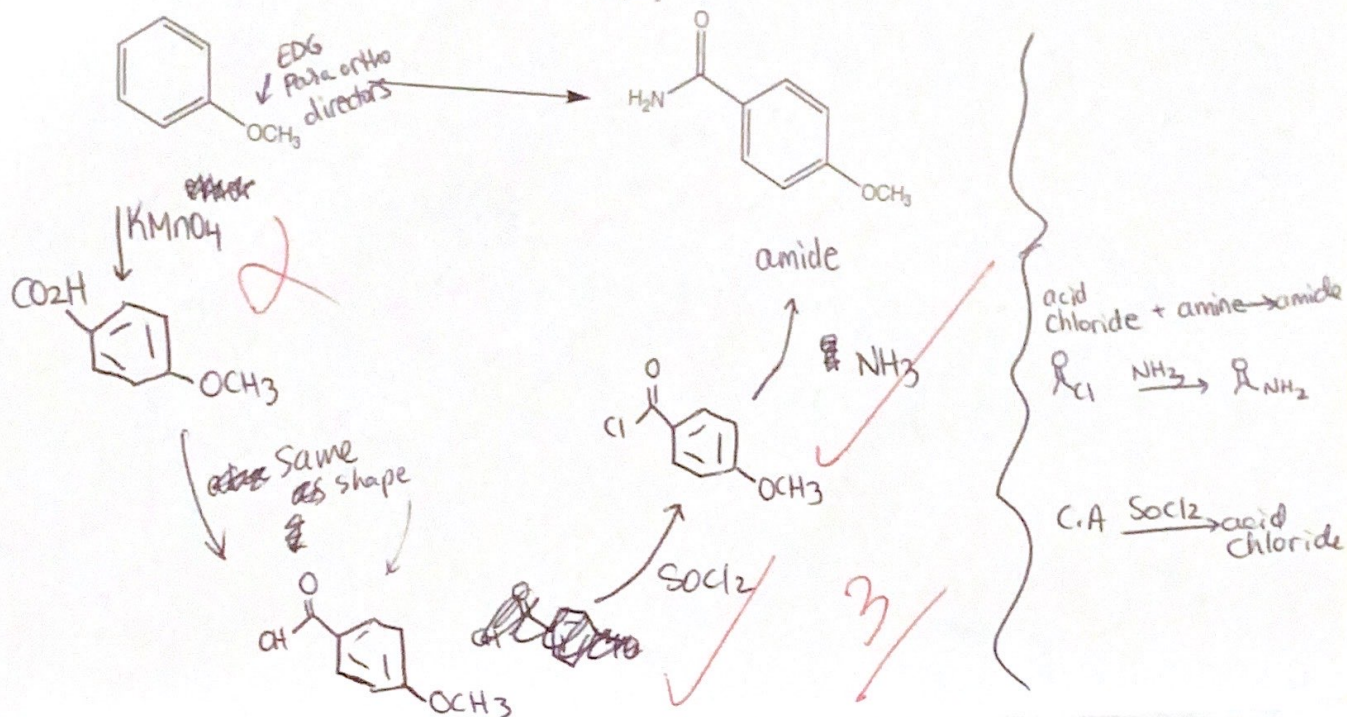 O
EDG
Para ortho
directors
H2N
OCH3
OCH3
KMnO4
CO2H
OCH3
amide
NH3
O
Cl
OCH3
same
as shape
O
OH
OCH3
SOCl2
3
acid
chloride + amine → amide
O
Cl NH3 → O NH2
C.A SOCl2 → acid
chloride